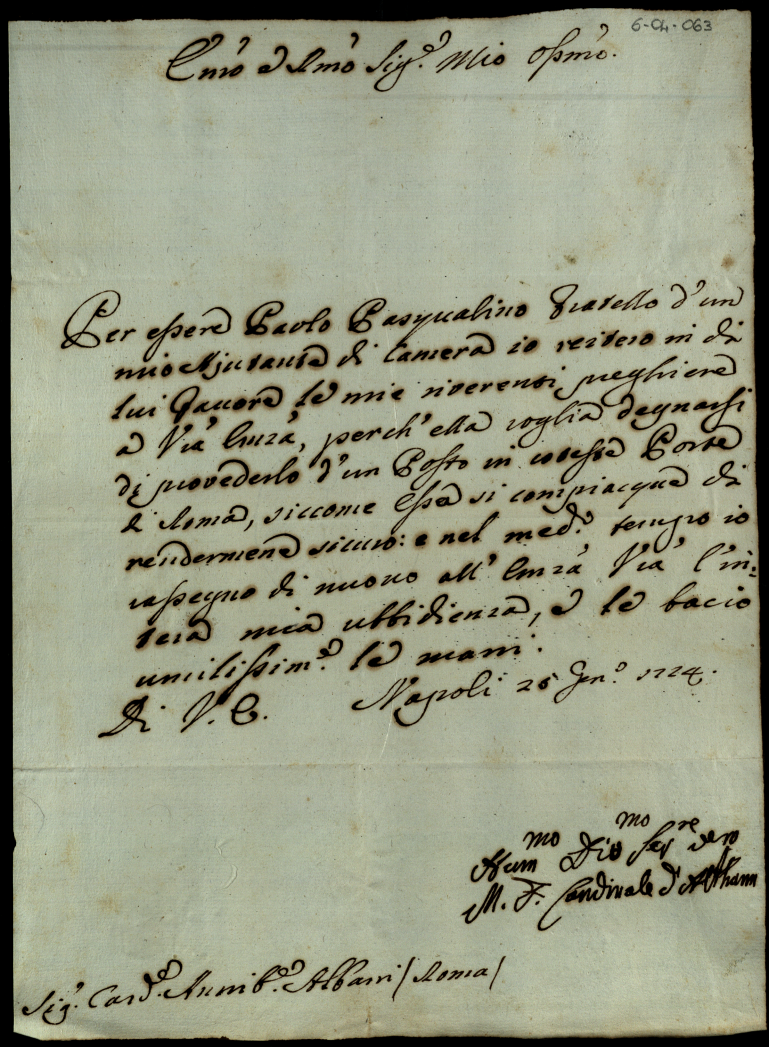 6-04-063
Emo e Rmo Sig.re Mio Ossmo.
Per essere Paolo Pasqualino fratello d'un
mio Ajutante di Camera io reitero in di
lui favore le mie riverenti preghiere
a V.ra Em.za, perch'ella voglia degnarsi
di provederlo d'un Posto in coteste Porte
di Roma, siccome essa si compiacque di
rendermene sicuro: e nel med.o tempo io
rassegno di nuovo all'Em.za V.ra l'in=
tera mia ubbidienza, e le bacio
umilissim.e le mani.
Di V. E. Napoli 25 Gen.o 1724.
Hum.mo Div.mo Ser.re vero
M. F. Cardinale d'Althann
Sig.r Card.le Annib.e Albani / Roma /